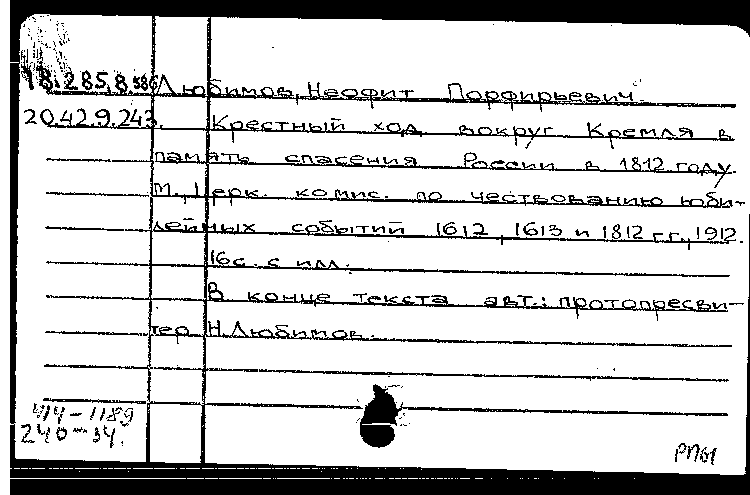 18.285.8.586 Любимов, Неофит Порфирьевич.
20.42.9.243. Крестный ход вокруг Кремля в
память спасения России в 1812 году.
М., Церк. комис. по чествованию юби-
лейных событий 1612, 1613 и 1812 г.г., 1912.
16с. с илл.
В конце текста авт.: протопресви-
тер Н. Любимов.
414-1189
240-34.